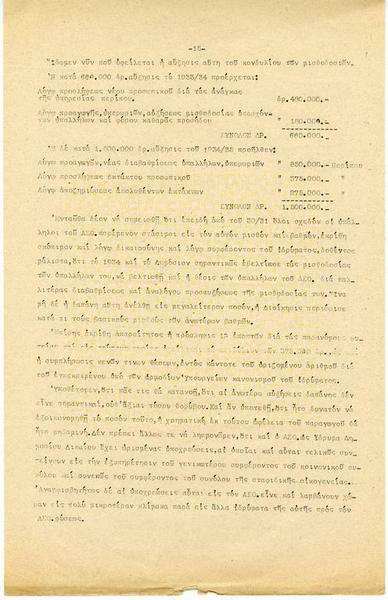 -15-
"Ιδωμεν νῦν ποῦ ὀφείλεται ἡ αὔξησις αὕτη τοῦ κονδυλίου τῶν μισθοδοσιῶν.
Ἡ κατά 660.000 δρ.αὔξησις τό 1933/34 προέρχεται:
Λόγῳ προσλήψεως νέου προσωπικοῦ διά τάς ἀνάγκας
τῆς ὑπηρεσίας περίπου. δρ.480.000.-
Λόγῳ προαγωγῆς,ὑπερωριῶν,αὐξήσεως μισθοδοσίας ὑπαρχόν-
των ὑπαλλήλων καί φόρου καθαρᾶς προσόδου " 180.000.-
ΣΥΝΟΛΟΝ ΔΡ. 660.000.-
Ἡ δέ κατά 1.500.000 δρ.αὔξησις τοῦ 1934/35 προῆλθεν:
Λόγῳ προαγωγῶν,νέας διαβαθμίσεως ὑπαλλήλων,ὑπερωριῶν " 850.000.- περίπου
Λόγῳ προσλήψεως ἐκτάκτου προσωπικοῦ " 375.000.- "
Λόγῳ ἀποζημιώσεως ἀπολυθέντων ἐκτάκτων " 275.000.- "
ΣΥΝΟΛΟΝ ΔΡ. 1.500.000.-
Ἐνταῦθα δέον νά σημειωθῇ,ὅτι ἐπειδή ἀπό τοῦ 30/31 ὅλοι σχεδόν οἱ ὑπάλ-
ληλοι τοῦ ΑΣΟ παρέμενον στάσιμοι εἰς τόν αὐτόν μισθόν καί βαθμόν,ἐκρίθη
σκόπιμον καί λόγῳ δικαιοσύνης καί λόγῳ συμφέροντος τοῦ ἱδρύματος,δοθέντος
μάλιστα,ὅτι τό 1934 καί τό Δημόσιον σημαντικῶς ἐβελτίωσε τάς μισθοδοσίας
τῶν ὑπαλλήλων του,νά βελτιωθῇ καί ἡ θέσις τῶν ὑπαλλήλων τοῦ ΑΣΟ διά καλ-
λιτέρας διαβαθμίσεως καί ἀναλόγου προσαυξήσεως τῆς μισθοδοσίας των. Ἵνα
μή δέ ἡ δαπάνη αὕτη ἀνέλθῃ εἰς μεγαλείτερον ποσόν,ἡ Διοίκησις περιώρισε
κατά τι τούς βασικούς μισθούς τῶν ἀνωτέρων βαθμῶν.
Ἐπίσης ἐκρίθη ἀπαραίτητος ἡ πρόσληψις 10 ἐποπτῶν διά τάς παρανόμους
375.000 δρ.
ἡ συμπλήρωσις κενῶν τινων θέσεων,ἐντός πάντοτε τοῦ ὁριζομένου ἀριθμοῦ διά
τοῦ ἐγκεκριμένου ὑπό τῶν ἁρμοδίων Ὑπουργείων κανονισμοῦ τοῦ ἱδρύματος.
ὅτι πᾶς τις θά κατανοῇ,ὅτι αἱ ἀνωτέρω αὐξήσεις δαπάνης δέν
εἶνε σημαντικαί,οὐδ'ἄξιαι τόσου θορύβου. Καί ἄν ὑποτεθῇ,ὅτι ἦτο δυνατόν νά
ἐξοικονομηθῇ τό ποσόν τοῦτο,ἡ χρηματική ἐκ τούτου ὠφέλεια τοῦ παραγωγοῦ θά
ἦτο μηδαμινή.Δέν πρέπει ἄλλως τε νά λησμονῶμεν,ὅτι καί ὁ ΑΣΟ,ὡς ἵδρυμα Δη-
μοσίου Δικαίου ἔχει ὡρισμένας ὑποχρεώσεις,αἱ ὁποῖαι καί αὗται τελικῶς συν-
τείνουν εἰς τήν ἐξυπηρέτησιν τοῦ γενικωτέρου συμφέροντος τοῦ κοινωνικοῦ συ-
νόλου καί συνεπῶς τοῦ συμφέροντος τοῦ συνόλου τῆς σταφιδικῆς οἰκογενείας.
Ἀναμφισβητήτως δέ αἱ ὑποχρεώσεις αὗται εἰς τόν ΑΣΟ εἶνε καί λαμβάνουν χώ-
ραν εἰς πολύ μικροτέραν κλίμακα παρά εἰς ἄλλα ἱδρύματα τῆς αὐτῆς πρός τόν
ΑΣΟ φύσεως.